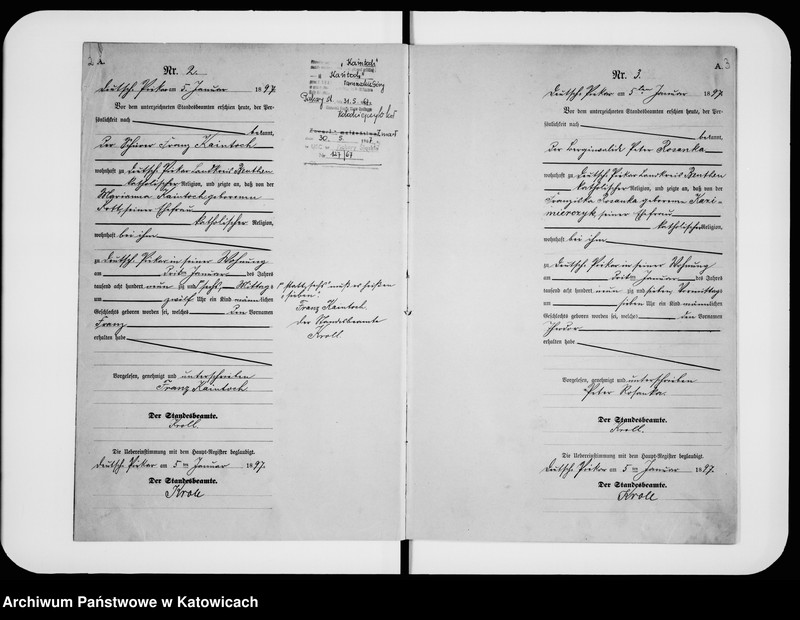 2
A.
Nr. 2.
Deutsch Piekar am 5. Januar 1897.
Vor dem unterzeichneten Standesbeamten erschien heute, der Per-
sönlichkeit nach
bekannt,
Der Franz Kaintoch
wohnhaft zu Deutsch Piekar Landkreis Beuthen
katholischer Religion, und zeigte an, daß von der
Marianna Kaintoch geborenen
seiner Ehefrau
katholischer Religion,
wohnhaft bei ihm
zu Deutsch Piekar in seiner Wohnung
am dritten Januar des Jahres
tausend acht hundert neun zig und sechs, Mittags
um zwölf Uhr ein Kind männlichen
Geschlechts geboren worden sei, welches den Vornamen
Franz
erhalten habe
Vorgelesen, genehmigt und unterschrieben
Franz Kaintoch
Der Standesbeamte.
Kroll.
Die Uebereinstimmung mit dem Haupt-Register beglaubigt.
Deutsch Piekar am 5ten Januar 1897.
Der Standesbeamte.
Kroll
"Kaintoch"
30. 5.
127/67
"statt "sechs" muß es heißen
"sieben".
Franz Kaintoch.
Der Standesbeamte
Kroll.
A. 3
Nr. 3.
Deutsch Piekar am 5ten Januar 1897.
Vor dem unterzeichneten Standesbeamten erschien heute, der Per-
sönlichkeit nach
bekannt,
Der Berginvalide Peter Rosanka
wohnhaft zu Deutsch Piekar Landkreis Beuthen
katholischer Religion, und zeigte an, daß von der
Franziska Rosanka geborenen Kazi-
mierczyk, seiner Ehefrau
katholischer Religion,
wohnhaft bei ihm
zu Deutsch Piekar in seiner Wohnung
am dritten Januar des Jahres
tausend acht hundert neun zig und sieben Vormittags
um sieben Uhr ein Kind männlichen
Geschlechts geboren worden sei, welches den Vornamen
Theodor
erhalten habe
Vorgelesen, genehmigt und unterschrieben
Peter Rosanka.
Der Standesbeamte.
Kroll.
Die Uebereinstimmung mit dem Haupt-Register beglaubigt.
Deutsch Piekar am 5ten Januar 1897.
Der Standesbeamte.
Kroll
Archiwum Państwowe w Katowicach